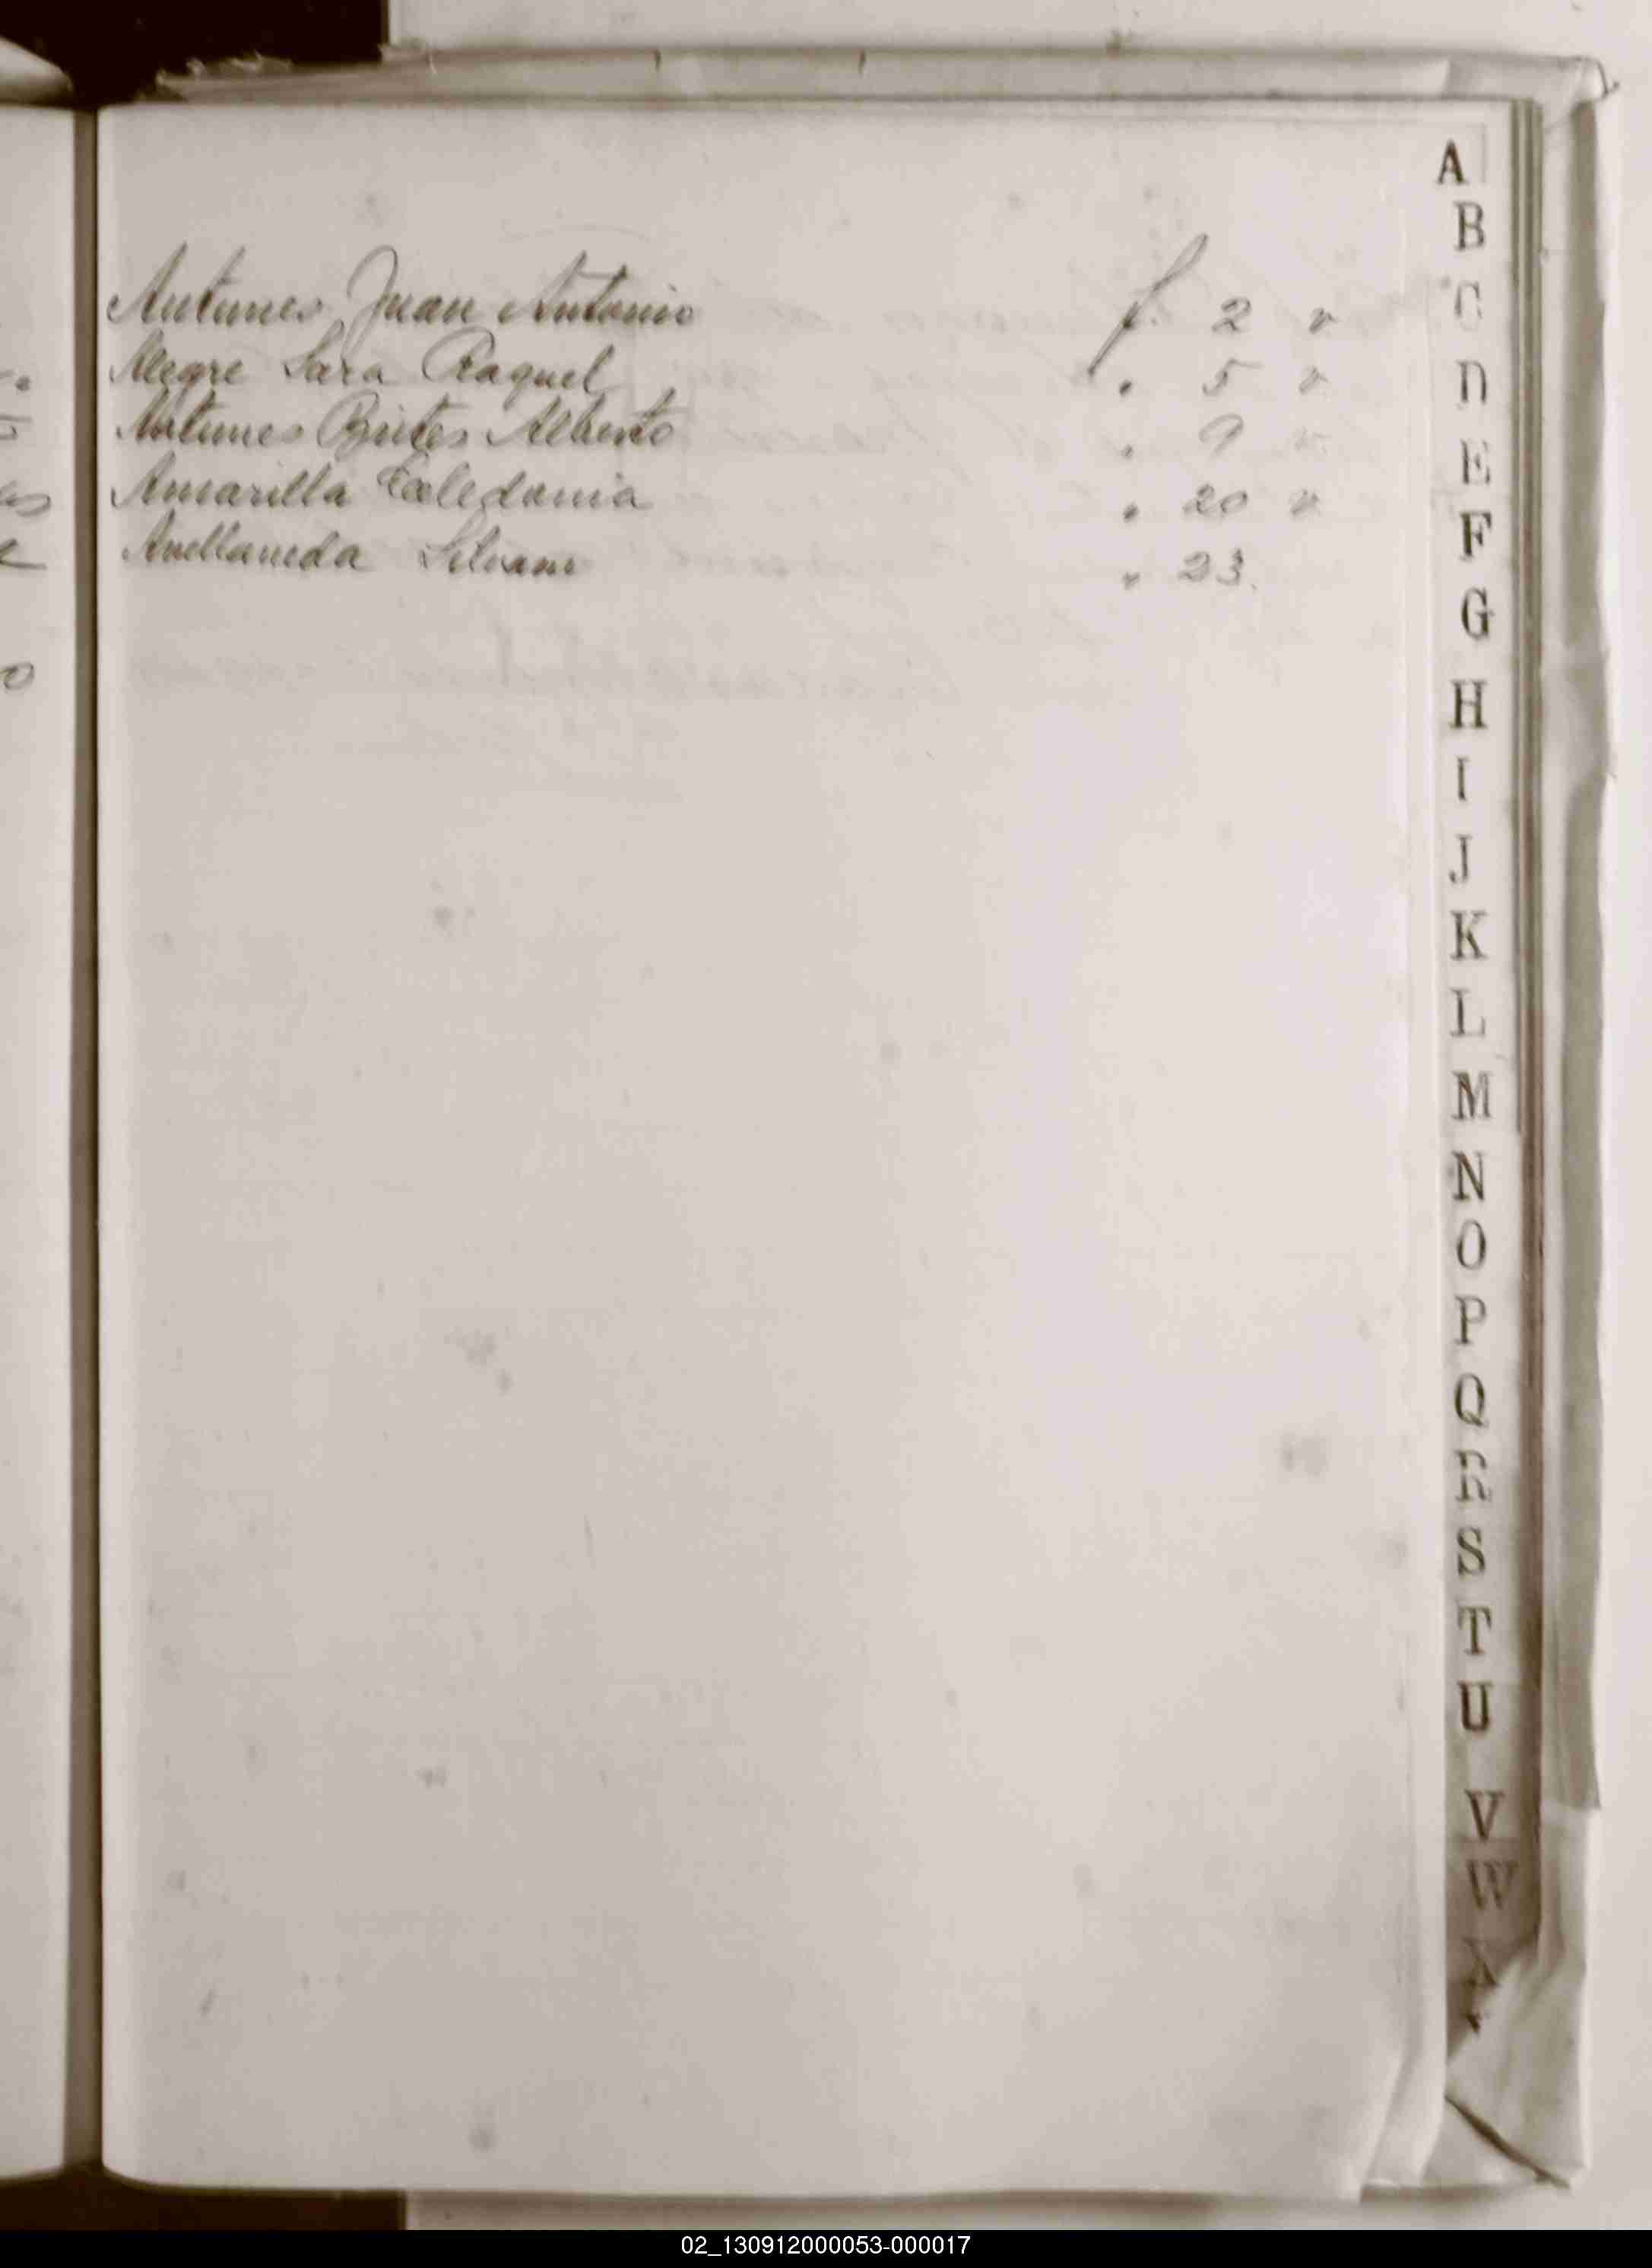 Antunes Juan Antonio f. 2 v
Alegre Sara Raquel " 5 v
Antunes Brites Alberto " 9 v
Amarilla Celedonia " 20 v
Avellaneda Silvano " 23.
A
B
C
D
E
F
G
H
I
J
K
L
M
N
O
P
Q
R
S
T
U
V
W
X
02_130912000053-000017